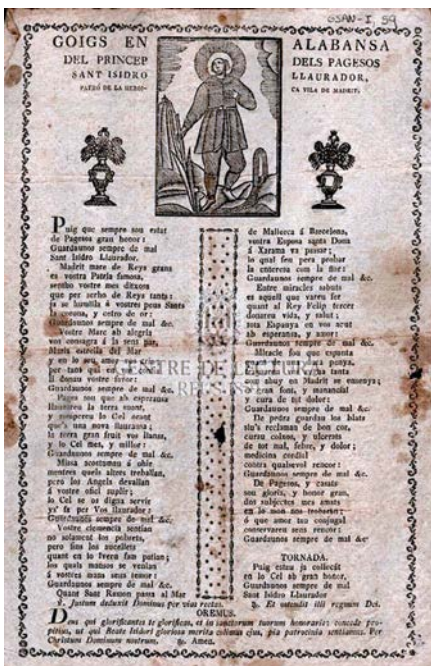 GSAN-I, 59
GOIGS EN ALABANSA
DEL PRINCEP DELS PAGESOS
SANT ISIDRO LLAURADOR,
PATRÓ DE LA HEROICA VILA DE MADRIT.
Puig que sempre sou estat
de Pagesos gran honor:
Guardaunos sempre de mal
Sant Isidro Llaurador.
Madrit mare de Reys grans
es vostra Patria famosa,
sentho vostre mes dixosa
que per serho de Reys tants:
ja se humilla á vostres peus Sants
la corona, y cetro de or:
Guardaunos sempre de mal &c.
Vostre Mare ab alegria
vos consagrá á la sens par,
Maria estrella del Mar
y en lo seu amor vos cria:
per tant qui en vos confia
li donau vostre favor:
Guardaunos sempre de mal &c.
Pages sou que ab esperansa
llaurareu la terra suant,
y rompereu lo Cel orant
que's una nova llauransa:
la terra gran fruit vos llansa,
y lo Cel mes, y millor:
Guardaunos sempre de mal &c.
Missa acostumau á ohir
mentres quels altres treballan,
pero los Angels devallan
á vostre ofici suplir;
lo Cel se os digna servir
ys' fa per Vos llaurador:
Guardaunos sempre de mal &c.
Vostre clemencia sentian
no solament los pobrets,
pero fins los aucellets
quant en lo Ivern fam patian;
los quals mansos se venian
á vostres mans sens temor:
Guardaunos sempre de mal &c.
Quant Sant Ramon passá al Mar
de Mallorca á Barcelona,
vostra Esposa santa Dona
á Xarama va passar;
lo qual feu pera probar
la enteresa con la flor:
Guardaunos sempre de mal &c.
Entre miracles subuts
es aquell que vareu fer
quant al Rey Felip tercer
donareu vida, y salut;
tota Espanya en vos acut
ab esperansa, y amor:
Guardaunos sempre de mal &c.
Miracle fou que espanta
y que en Madrit se ensenya;
gran font, y manancial
y cura de tot dolor:
Guardaunos sempre de mal &c.
De pedra guardau los blats
siu's reclaman de bon cor,
curau colsos, y ulcerats
de tot mal, febre, y dolor;
medicina cordial
contra qualsevol rencor:
Guardaunos sempre de mal &c.
De Pagesos, y casats
sou gloria, y honor gran,
dos subjectes mes amats
en lo mon nos trobarán;
ó que amor tan conjugal
conservaren sens rencor:
Guardaunos sempre de mal &c
TORNADA.
Puig estau ja collocát
en lo Cel ab gran honor,
Guardaunos sempre de mal
Sant Isidro Llaurador
℣. Justum deduxit Dominus per vias rectas. ℟. Et ostendit illi regnum Dei.
OREMUS.
Deus qui glorificantes te glorificas, et in sanctorum tuorum honoribus honoraris: concede propitius, ut qui Beati Isidori gloriosa merita colimus ejus, pia patrocinia sentiamus. Per
Christum Dominum nostrum. ℟. Amen.
CENTRE DE LECTURA
REUS